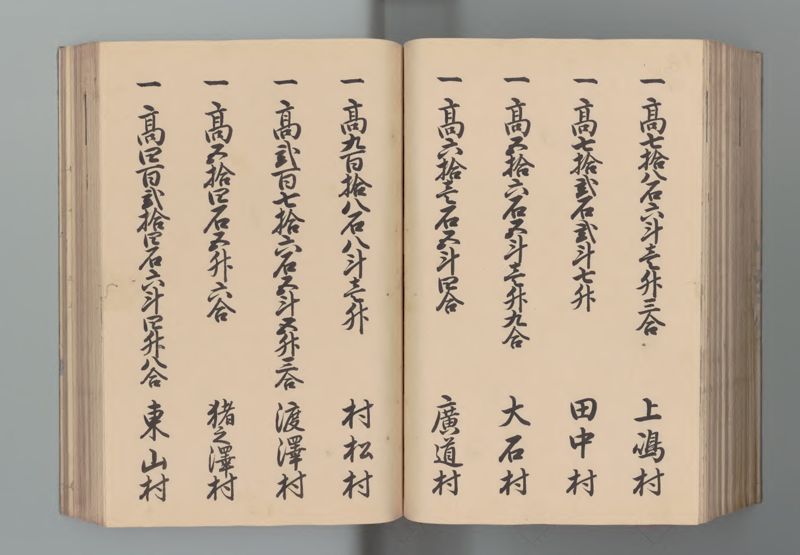 一 高七拾八石六斗壱升三合 上嶋村
一 高七拾弐石弐斗七升 田中村
一 高五拾六石五斗壱升九合 大石村
一 高六拾壱石五斗四合 廣道村
一 高九百拾八石八斗壱升 村松村
一 高弐百七拾六石五斗五升三合 渡澤村
一 高五拾四石五升六合 猪之澤村
一 高四百弐拾四石六斗四升八合 東山村